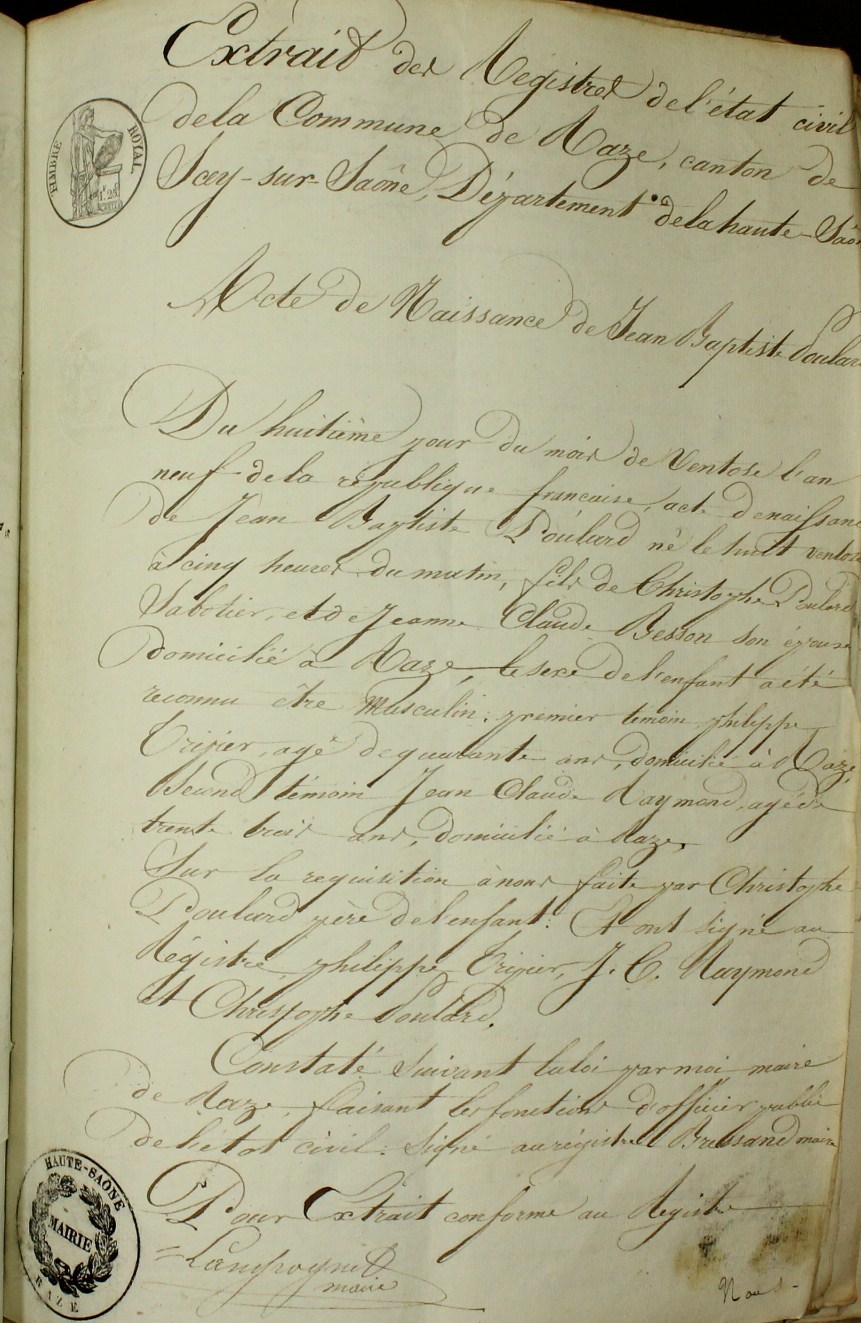 Extrait des Régistres de l'état civil
de la Commune de Raze, canton de
Scey-sur-Saône, Département de la haute-Saô
TIMBRE ROYAL
1F. 25
Acte de Naissance de Jean Baptiste Poulard
Du huitième jour du mois de Ventose l'an
neuf de la république francaise, acte de naissanc
de Jean Baptiste Poulard né le huit ventose
à cinq heures du matin, fils de Christophe Poulard
Sabotier, et de Jeanne Claude Besson son épouse
domicilié à Raze, le sexe de l'enfant a été
reconnu être Masculin; premier témoin philippe
agé de quarante ans, domicilié à Raze,
Second témoin Jean Claude Raymond, agé de
trente trois ans, domicilié à Raze,
Sur la requisition à nous faite par Christophe
Poulard père de l'enfant: Et ont signé au
Régistre, philippe J. C. Raymond
et Christophe Poulard.
Constaté Suivant la loi par moi maire
de Raze, faisant les fonctions d'officier public
de l'état civil. Signé au régistre Bressand maire
Pour Extrait conforme au Régistre
maire
HAUTE-SAÔNE
MAIRIE
RAZE